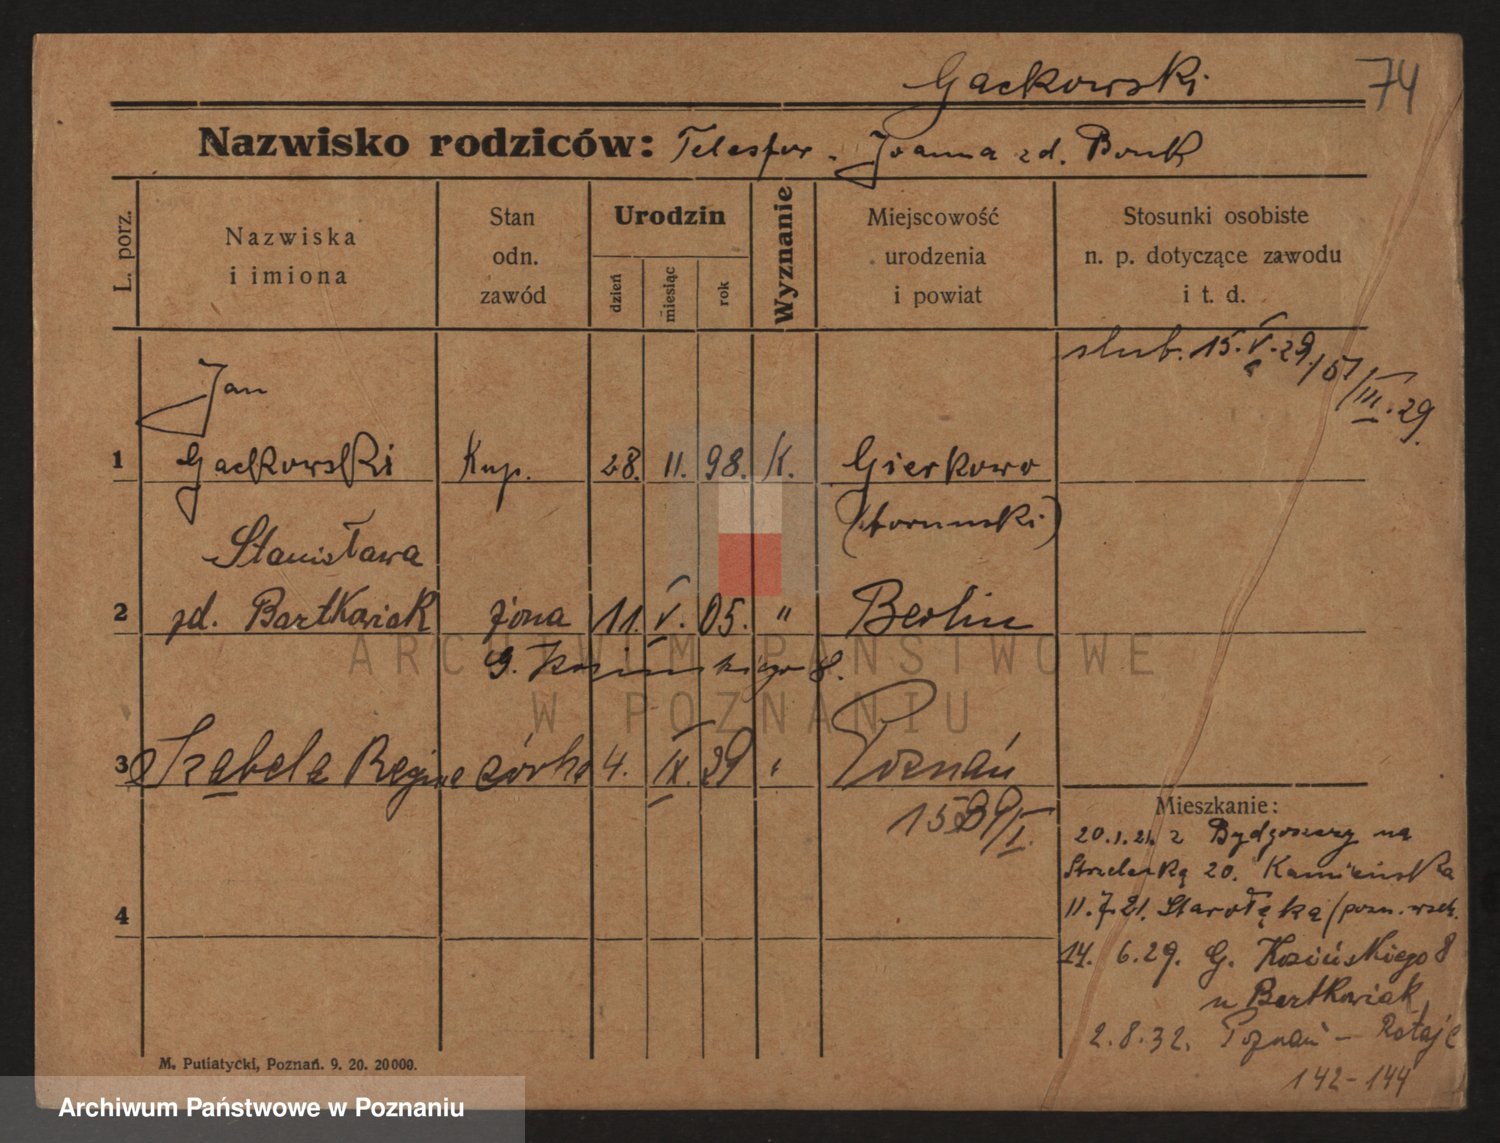 Gackowski 74
Nazwisko rodziców: Telesfor - Joanna zd. Bonk
L. porz.
Nazwiska i imiona
Stan odn. zawód
Urodzin
dzień
miesiąc
rok
Wyznanie
Miejscowość urodzenia i powiat
Stosunki osobiste n. p. dotyczące zawodu i t. d.
slub. 15. V. 29/
III. 29.
Jan
1 Gackowski Kup. 28. II. 98. K. Gierkowo
(toruński)
Stanisława
2 zd. Bartkowiak żona 11. V. 05. " Berlin
G. Kosińskiego 8.
3 Izabela Regina córka 4. IX. 29 " Poznań
4
Mieszkanie:
20.1.21. z Bydgoszczy na
Strzelecką 20. Kamieńska
11.7.21. Starołęka (pozn. wsch.
14. 6.29. G. Kosińskiego 8
u Bartkowiak
2.8.32. Poznań - Rataje
142-144
M. Putiatycki, Poznań. 9. 20. 20000.
ARCHIWUM PAŃSTWOWE
W POZNANIU
Archiwum Państwowe w Poznaniu